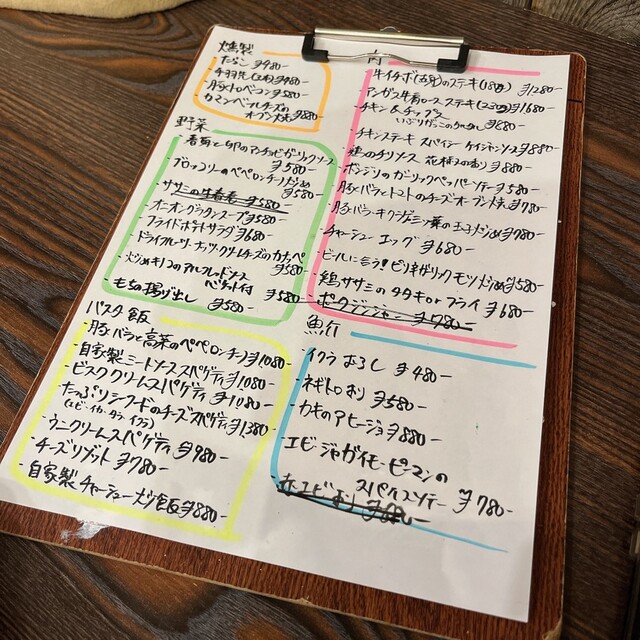 燻製
・たらこ ¥480-
・手羽先(2本) ¥480-
・豚トロベーコン ¥580-
・カマンベールチーズの
オーブン焼 ¥880-
野菜
・春菊と卵のアンチョビガーリックソース
¥580-
・ブロッコリーのペペロンチーノ炒め
¥580-
・オニオングラタンスープ ¥580-
・フライドポテトサラダ ¥680-
・ドライフルーツ・ナッツ・クリームチーズのカナッペ
¥580-
・炒めキノコのアルフレッドソース
バゲット付 ¥580-
・もちの揚げ出し ¥580-
パスタ 飯
・豚バラと高菜のペペロンチーノ ¥1,080-
・自家製ミートソーススパゲティ ¥1080-
・ビスククリームスパゲティ ¥1080-
・たっぷりシーフードのチーズスパゲティ ¥1380-
(エビ・イカ・タラ・イクラ)
・ウニクリームスパゲティ ¥980-
・チーズリゾット ¥780-
・自家製チャーシュー炒飯 ¥880-
肉
・牛イチボ のステーキ ¥1280-
・アンガス牛肩ロースステーキ ¥1680-
・チキン&チップス
¥680-
・チキンステーキ スパイシーケイジャンソース ¥880-
・鶏のチリソース 花椒の香り ¥880-
・ボンジリのガーリックペッパーソテー ¥580-
・豚バラとトマトのチーズオーブン焼 ¥780-
・豚バラ・キクラゲ・ニラ の玉子炒め ¥780-
・チャーシューエッグ ¥630-
・ビールに合う!ビリ辛ガリックモツ炒め ¥580-
・鶏ササミのタタキorフライ ¥680-
・ポークジンジャー ¥780-
魚介
・イクラおろし ¥480-
・ネギトロ ¥580-
・カキのアヒージョ ¥880-
・エビ・ジャガイモ・ピーマンの
スパイスソテー ¥780-